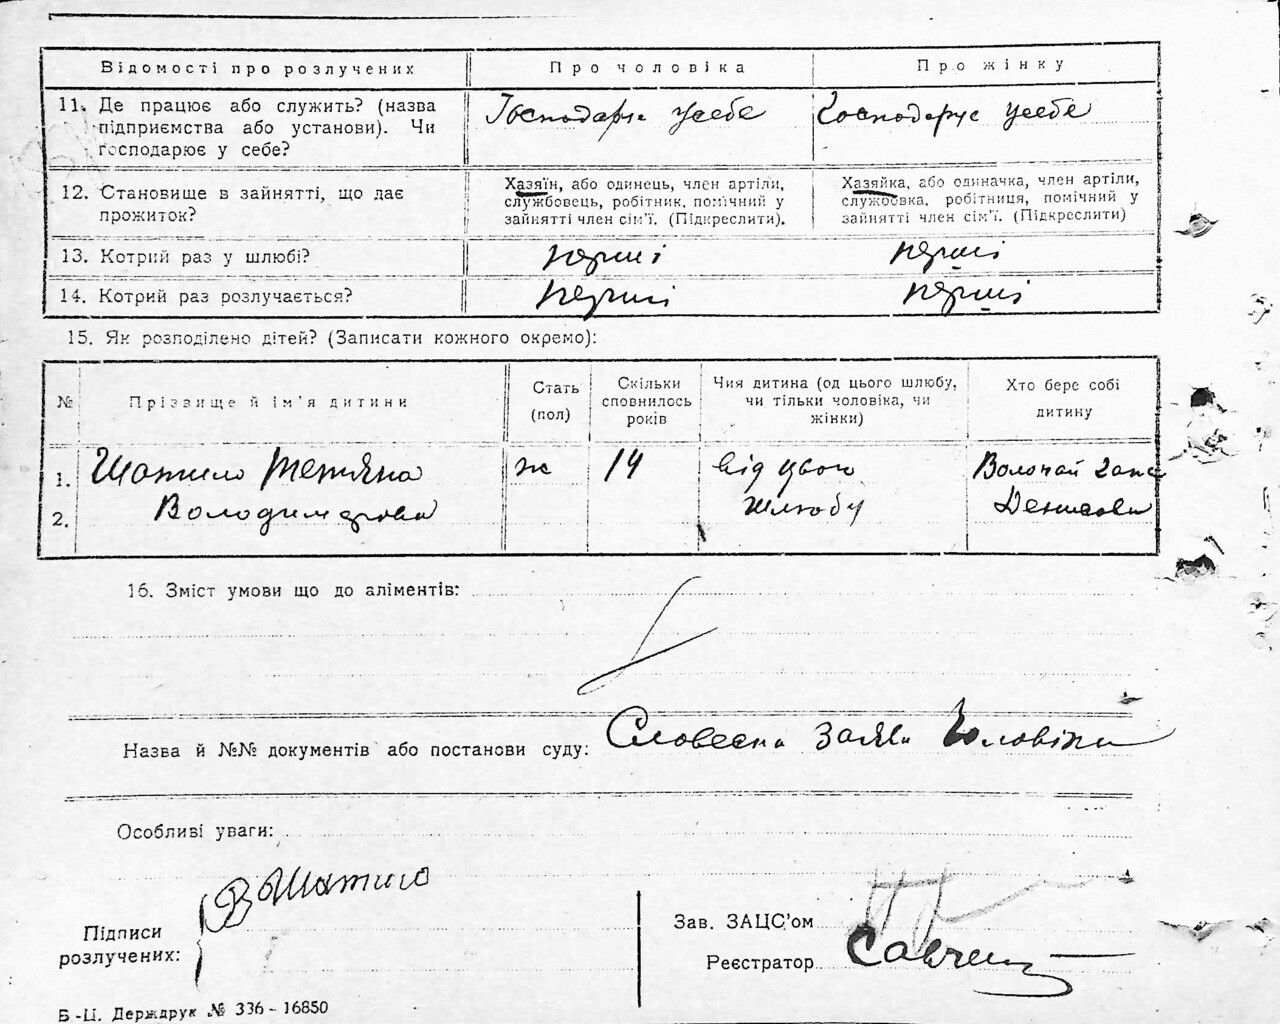 Відомості про розлучених Про чоловіка Про жінку
11. Де працює або служить? (назва підприємства або установи). Чи господарює у себе?
Господарює у себе
Господарює у себе
12. Становище в зайнятті, що дає прожиток?
Хазяїн, або одинець, член артілі,
службовець, робітник, помічний у
зайнятті член сім'ї. (Підкреслити).
Хазяйка, або одиначка, член артілі,
службовка, робітниця, помічний у
зайнятті член сім'ї. (Підкреслити)
13. Котрий раз у шлюбі? перший перший
14. Котрий раз розлучається? перший перший
15. Як розподілено дітей? (Записати кожного окремо):
№ Прізвище й ім'я дитини
Стать
(пол)
Скільки
сповнилось
років
Чия дитина (од цього шлюбу,
чи тільки чоловіка, чи
жінки)
Хто бере собі
дитину
1. Шатило Тетяна ж 14 від цього Волочай
2. Володимирова шлюбу Денисова
16. Зміст умови що до аліментів:
Назва й №№ документів або постанови суду: Словесна заява чоловіка
Особливі уваги:
Підписи
розлучених:
В Шатило
Зав. ЗАЦС'ом
Реєстратор Савченко
Б-Ц. Держдрук № 336-16850